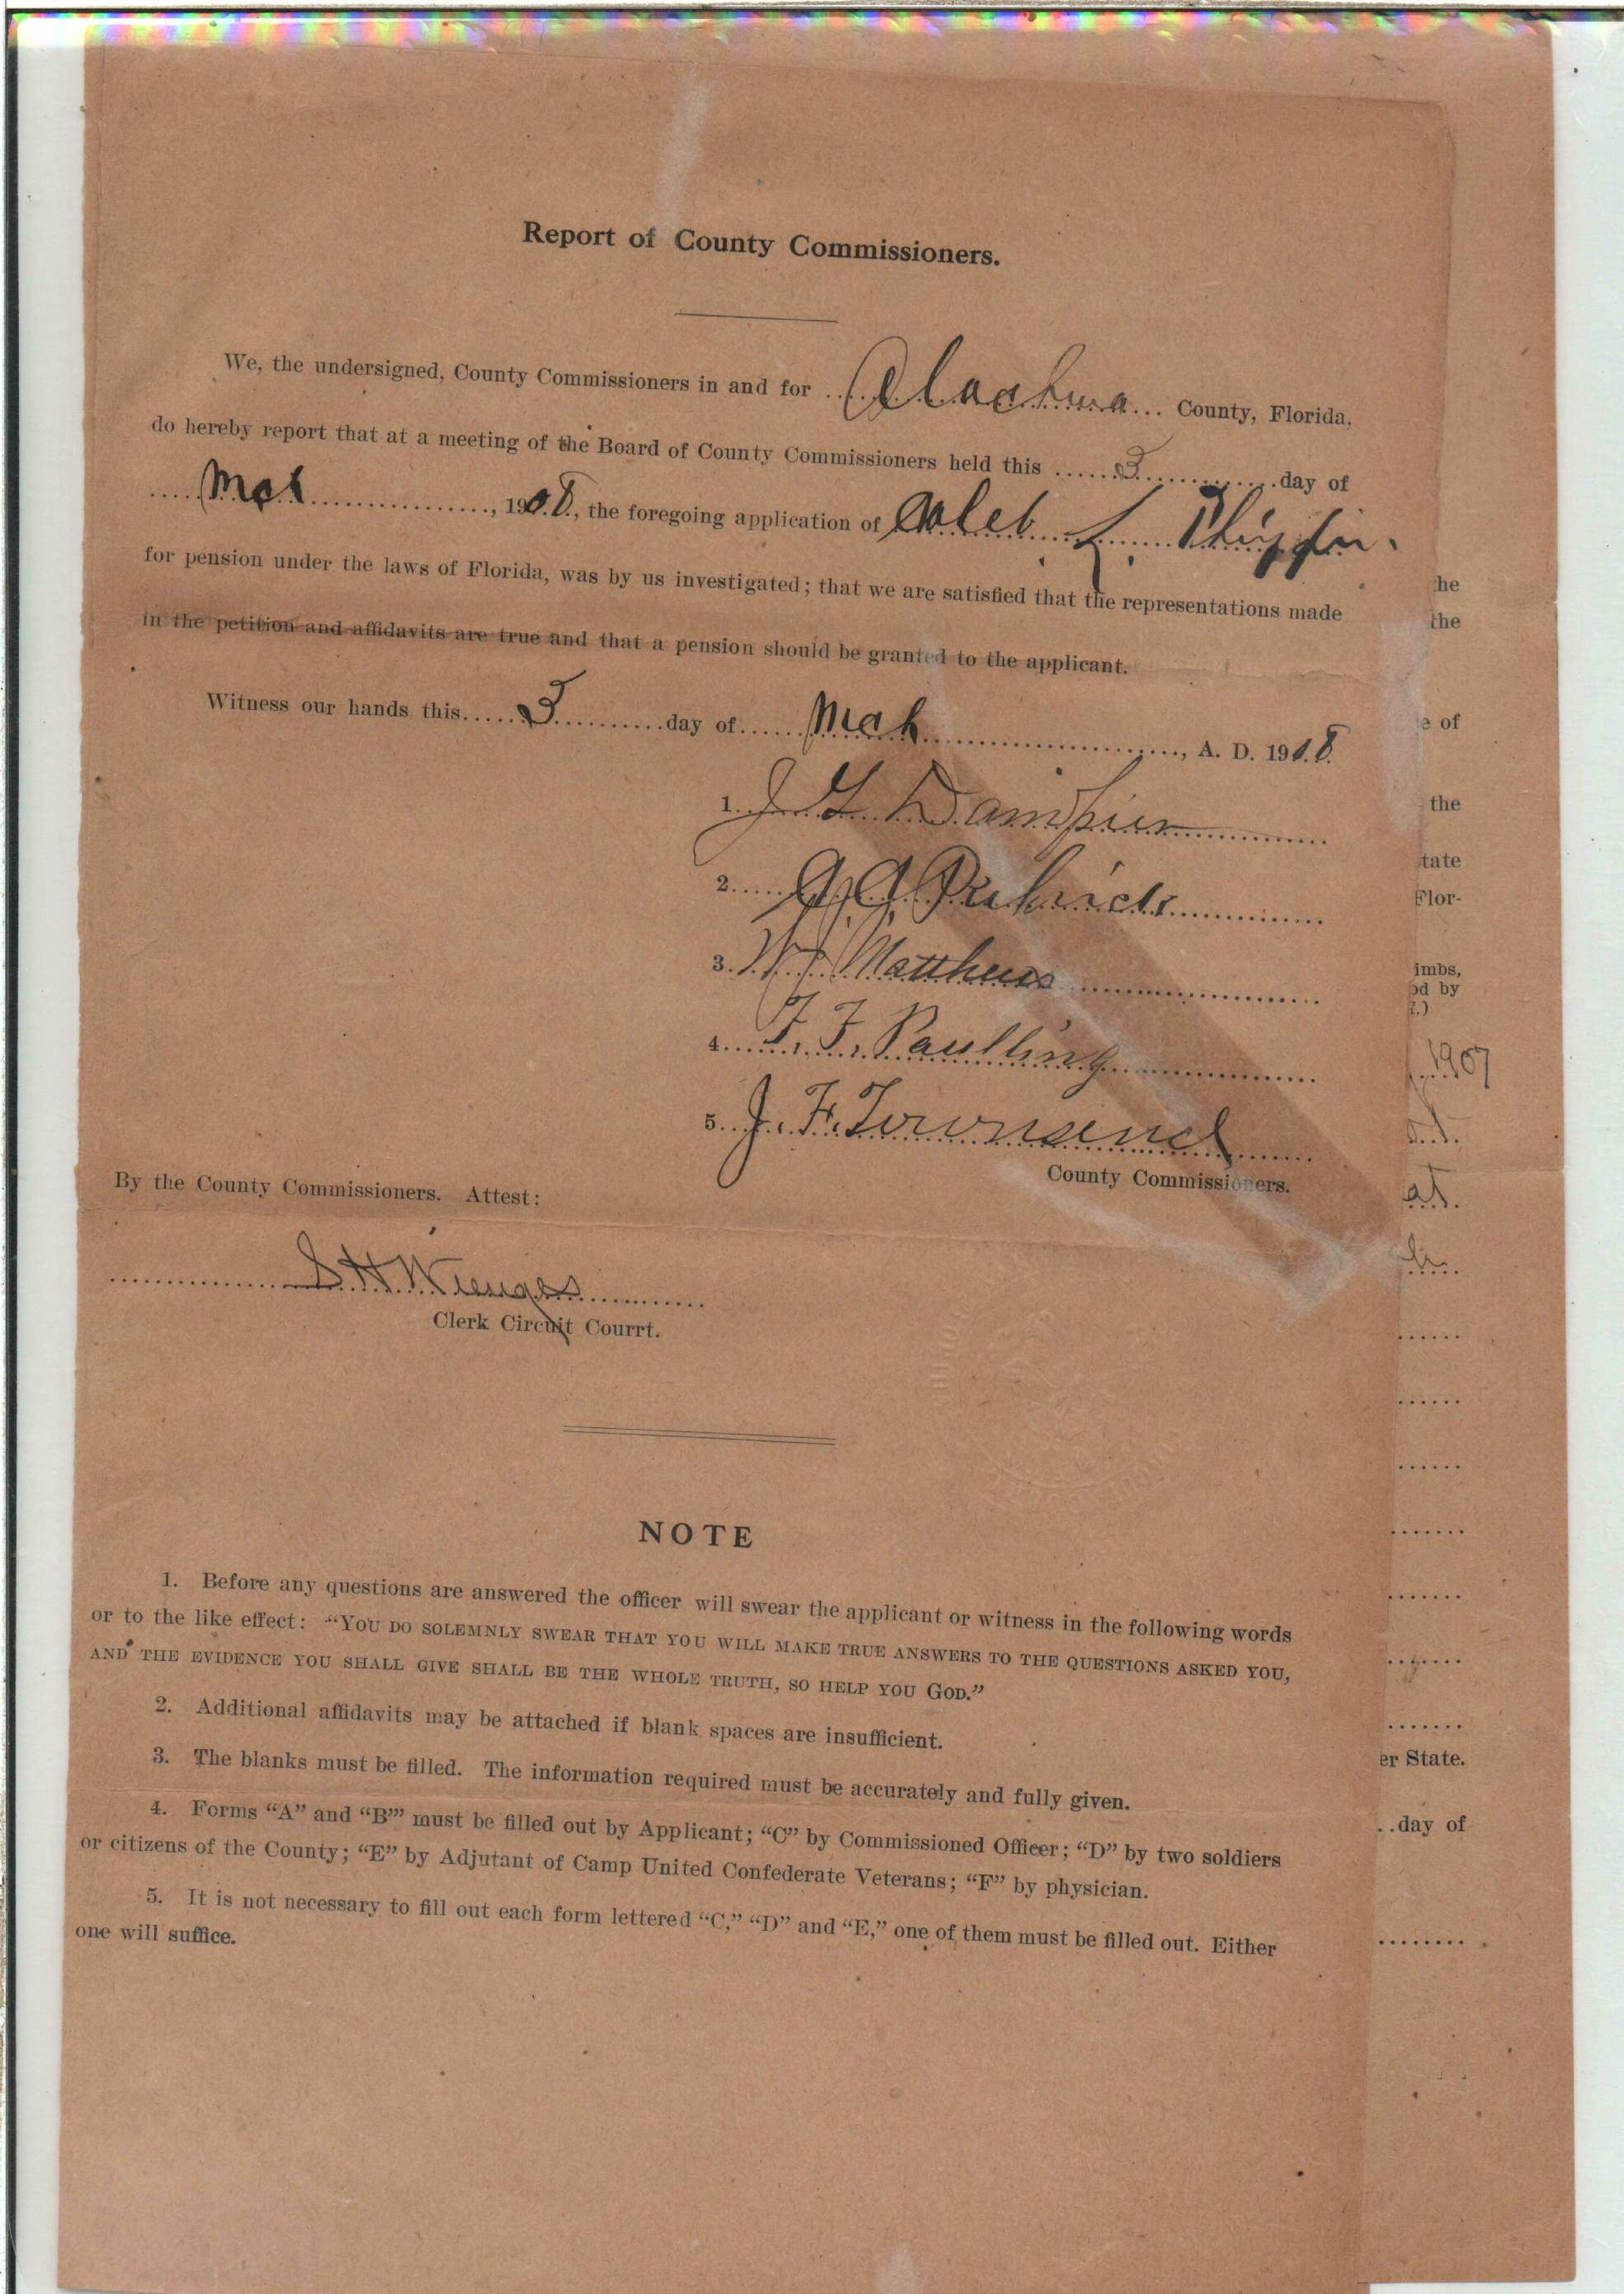 Report of County Commissioners.
We, the undersigned, County Commissioners in and for Alachua County, Florida,
do hereby report that at a meeting of the Board of County Commissioners held this 3 day of
Mch, 1908, the foregoing application of Caleb L.
for pension under the laws of Florida, was by us investigated; that we are satisfied that the representations made
in the petition and affidavits are true and that a pension should be granted to the applicant.
Witness our hands this 3 day of Mch, A. D. 1908.
1. J G Dampier
2.
3. W J Matthews
4. F. F. Paulling
5. J. F. Townsend
County Commissioners.
By the County Commissioners. Attest:
S H Wienges
Clerk Circuit Courrt.
NOTE
1. Before any questions are answered the officer will swear the applicant or witness in the following words
or to the like effect: “YOU DO SOLEMNLY SWEAR THAT YOU WILL MAKE TRUE ANSWERS TO THE QUESTIONS ASKED YOU,
AND THE EVIDENCE YOU SHALL GIVE SHALL BE THE WHOLE TRUTH, SO HELP YOU GOD.”
2. Additional affidavits may be attached if blank spaces are insufficient.
3. The blanks must be filled. The information required must be accurately and fully given.
4. Forms “A” and “B’” must be filled out by Applicant; “C” by Commissioned Officer; “D” by two soldiers
or citizens of the County; “E” by Adjutant of Camp United Confederate Veterans; “F” by physician.
5. It is not necessary to fill out each form lettered “C,” “D” and “E,” one of them must be filled out. Either
one will suffice.
he
the
e of
the
tate
Flor-
imbs,
od by
1907
at.
er State.
day of